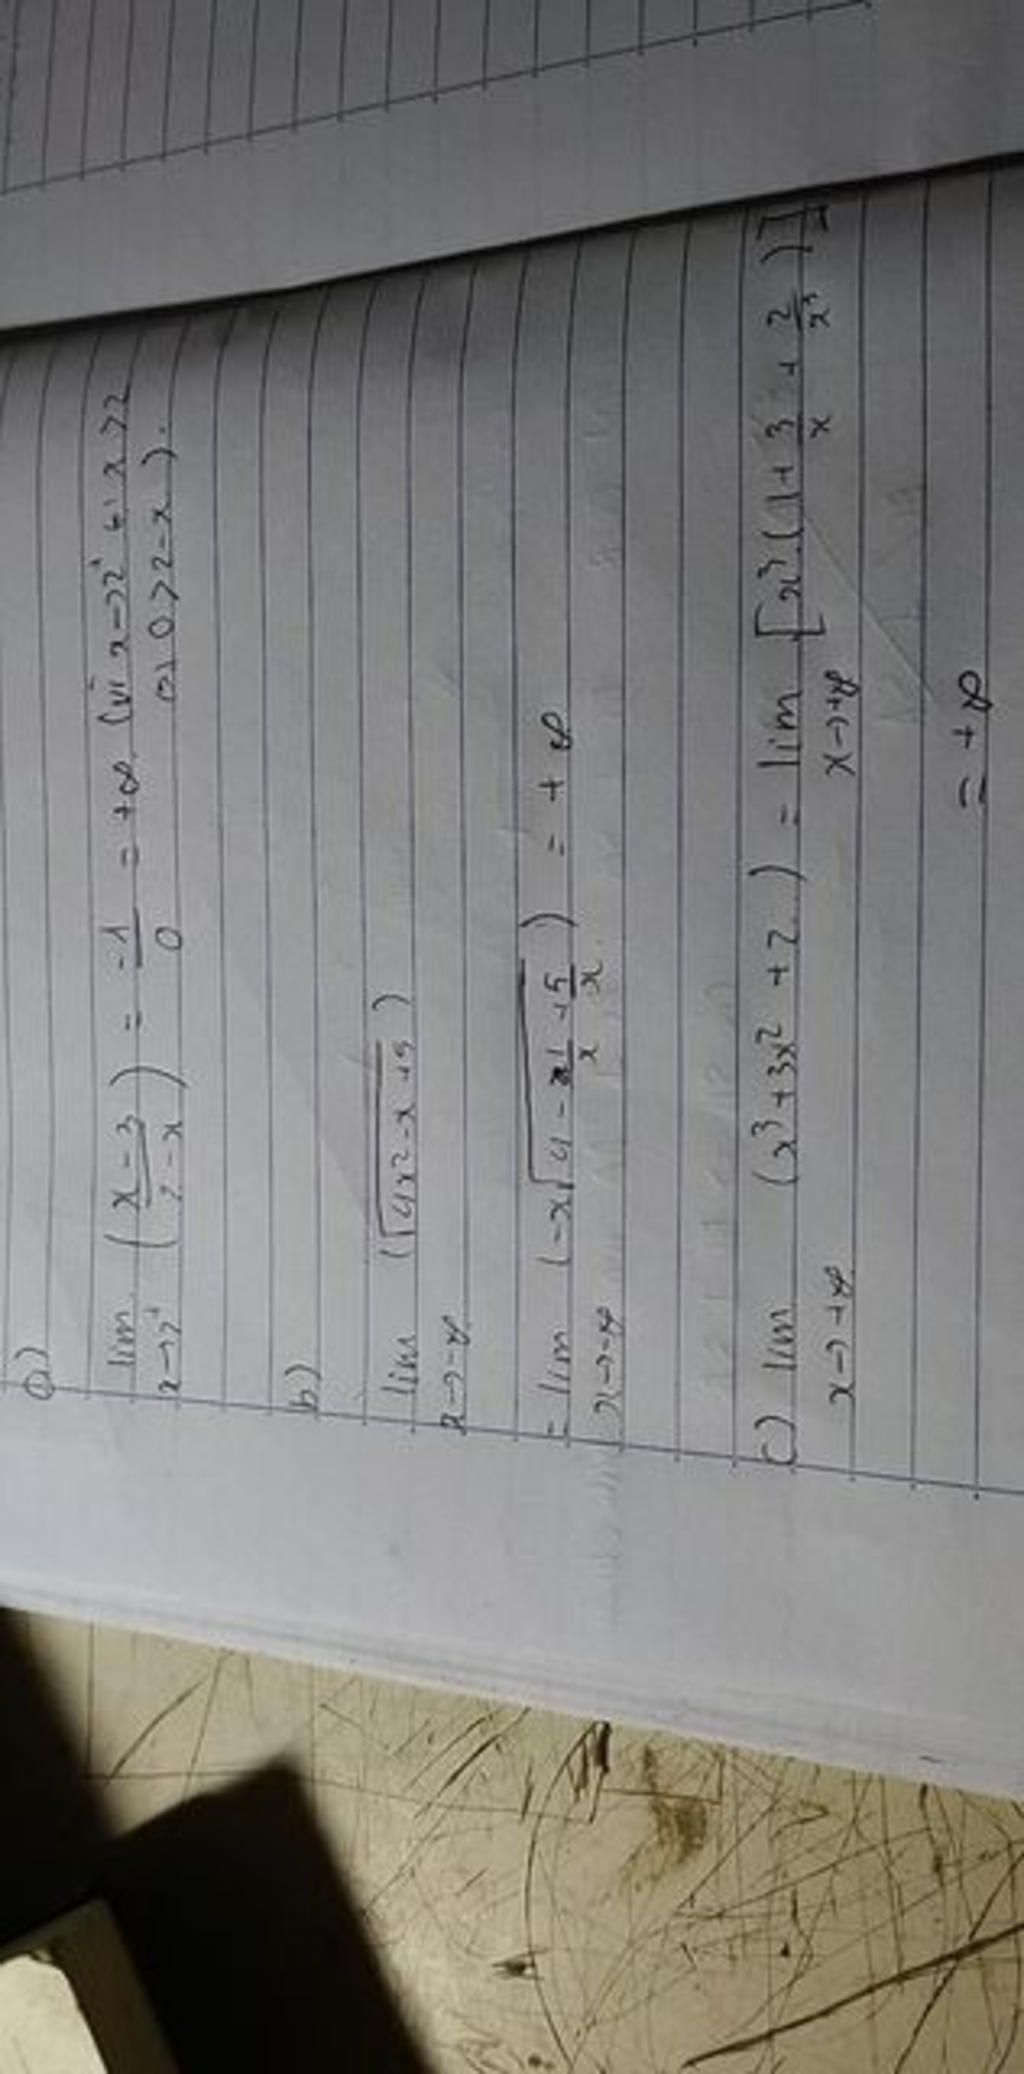 a)
lim (x-3 / 2-x) = -1/0 = +∞ (vì x→2⁺ <=> x>2
x→2⁺ <=> 0>2-x).
b)
lim (√4x²-x+5)
x→-∞
= lim (-x√4 - 1/x + 5/x) = +∞
x→-∞
c) lim (x³+3x²+2) = lim [x³(1+ 3/x + 2/x³)]
x→+∞ x→+∞
= +∞